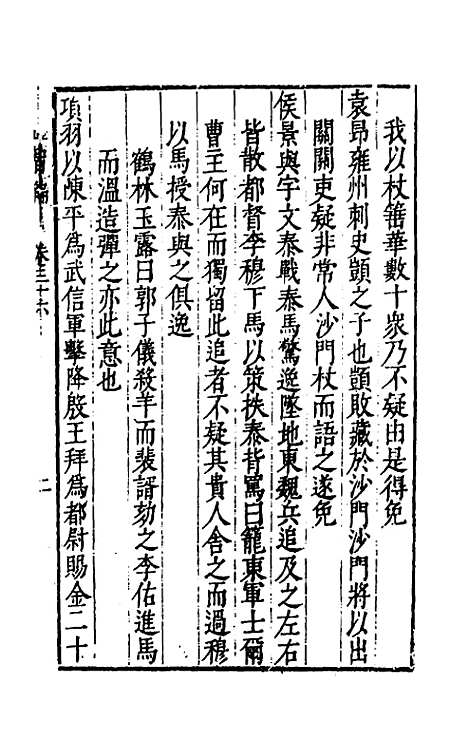 我以杖箠華數十衆乃不疑由是得免
袁昂雍州刺史顗之子也顗敗藏於沙門沙門將以出
關關吏疑非常人沙門杖而語之遂免
侯景與宇文泰戰泰馬驚逸墜地東魏兵追及之左右
皆散都督李穆下馬以策抶泰背罵曰籠東軍士爾
曹王何在而獨留此追者不疑其貴人舍之而過穆
以馬授泰與之俱逸
鶴林玉露曰郭子儀殺羊而裴諝劾之李佑進馬
而溫造彈之亦此意也
項羽以陳平爲武信軍擊降殷王拜爲都尉賜金二十
卷三十六
二